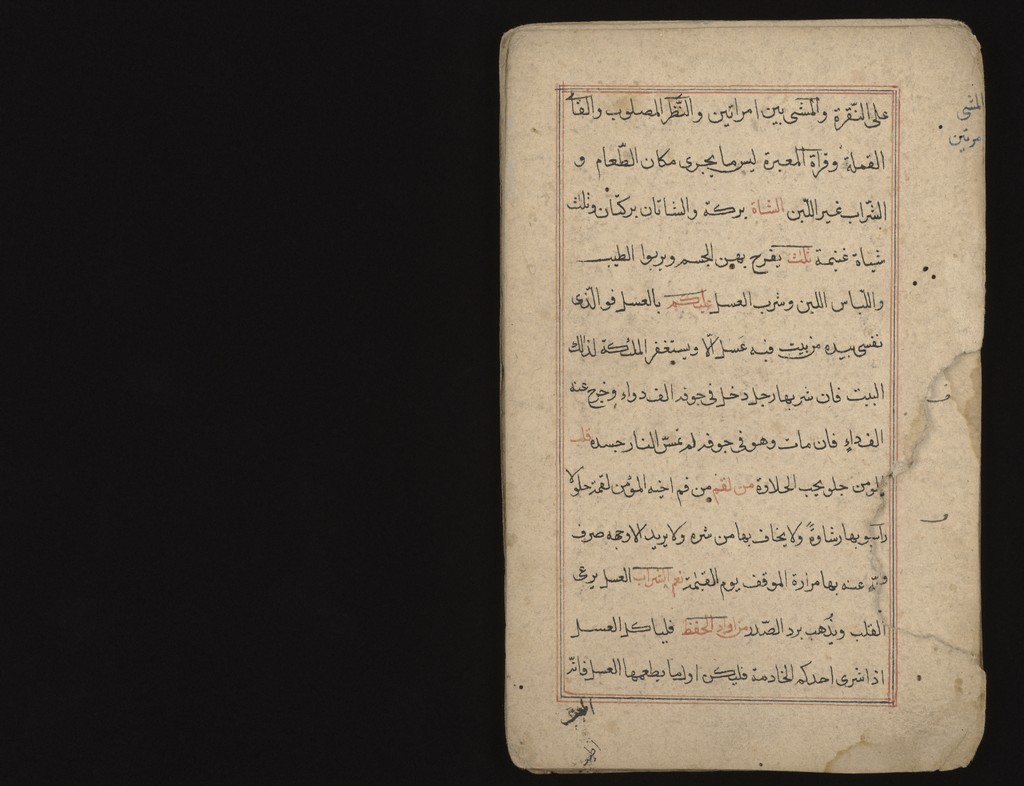 على النّقرة والمشى بين امراتين والنّظر المصلوب والقاء
القملة وقراة المعبرة ليس ما يجرى مكان الطّعام و
الشّراب غير اللّبن الشاة بركة والشاتان بركتان وثلث
شياة غنيمة ثلث يفرح بهن الجسم ويربوا الطيب
واللّباس اللين وشرب العسل عليكم بالعسل فو الّذى
نفسى بيده من بيت فيه عسل الّا ويستغفر الملئكة لذالك
البيت فان شربها رجل دخل فى جوفه الف دواء وخرج عنه
الف داء فان مات وهو فى جوفه لم تمسّ النار جسده قلب
المومن حلو يحب الحلاوة من لقم من فم اخيه المؤمن لقمة حلوا
بها رشاوة ولا يخاف بها من شره ولا يريد الا وجهه صرف
عنه بها مرارة الموقف يوم القيمة نعم الشراب العسل يرعى
القلب ويذهب برد الصّدر من اراد الحفظ فلياكل العسل
اذا شرى احدكم الخادمة فليكن اول ما يطعمها العسل فانّه
المشى